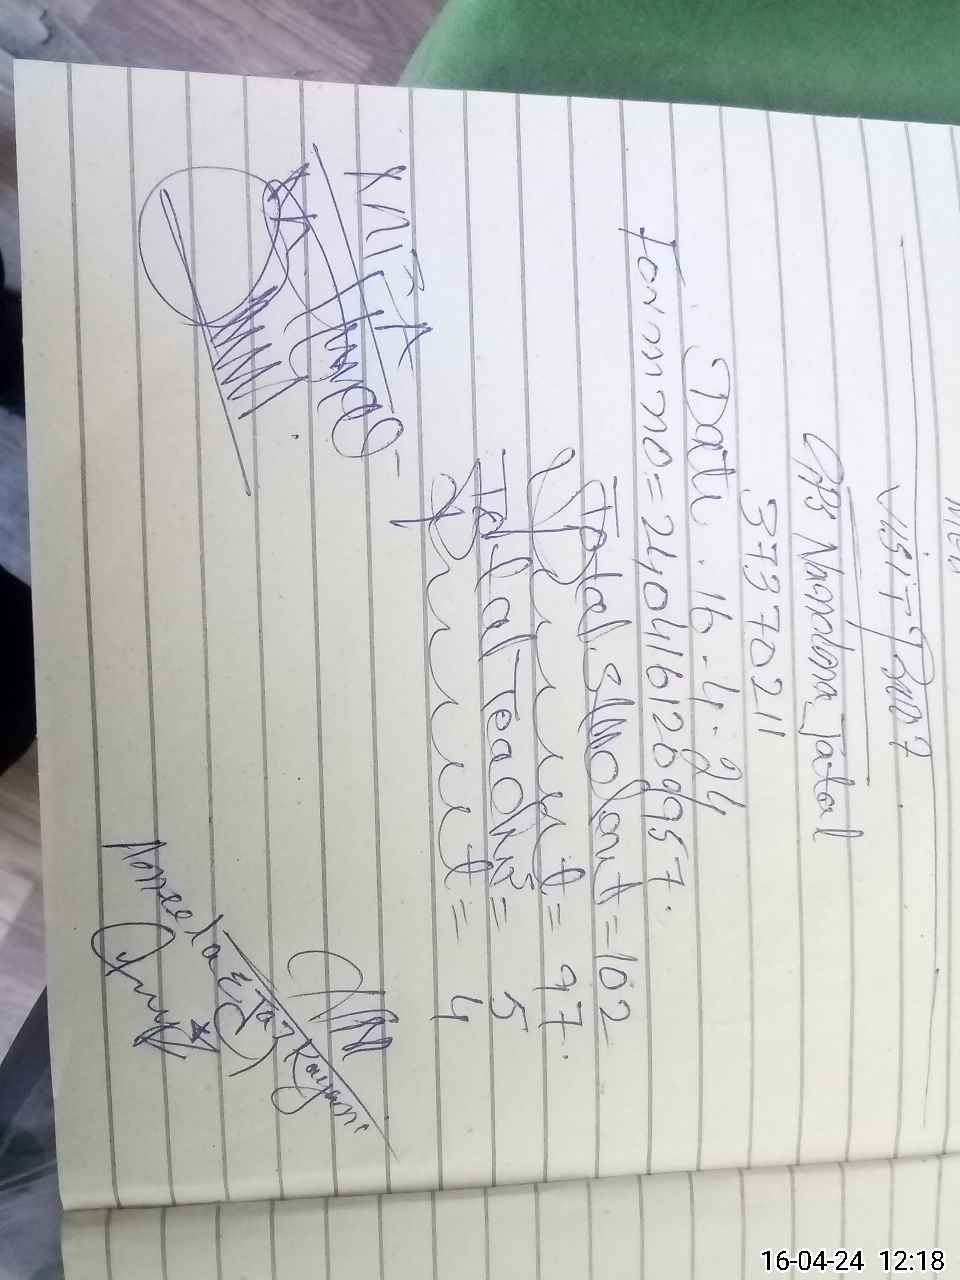 VisiT
GPS Narodona Jatal
37370211
Date . 16 - 4 - 24
Form no = 240416120957.
Total Student = 102
Present = 97.
Total Teacher's = 5
Present = 4
Aneela Ejaz Kayani
16-04-24 12:18